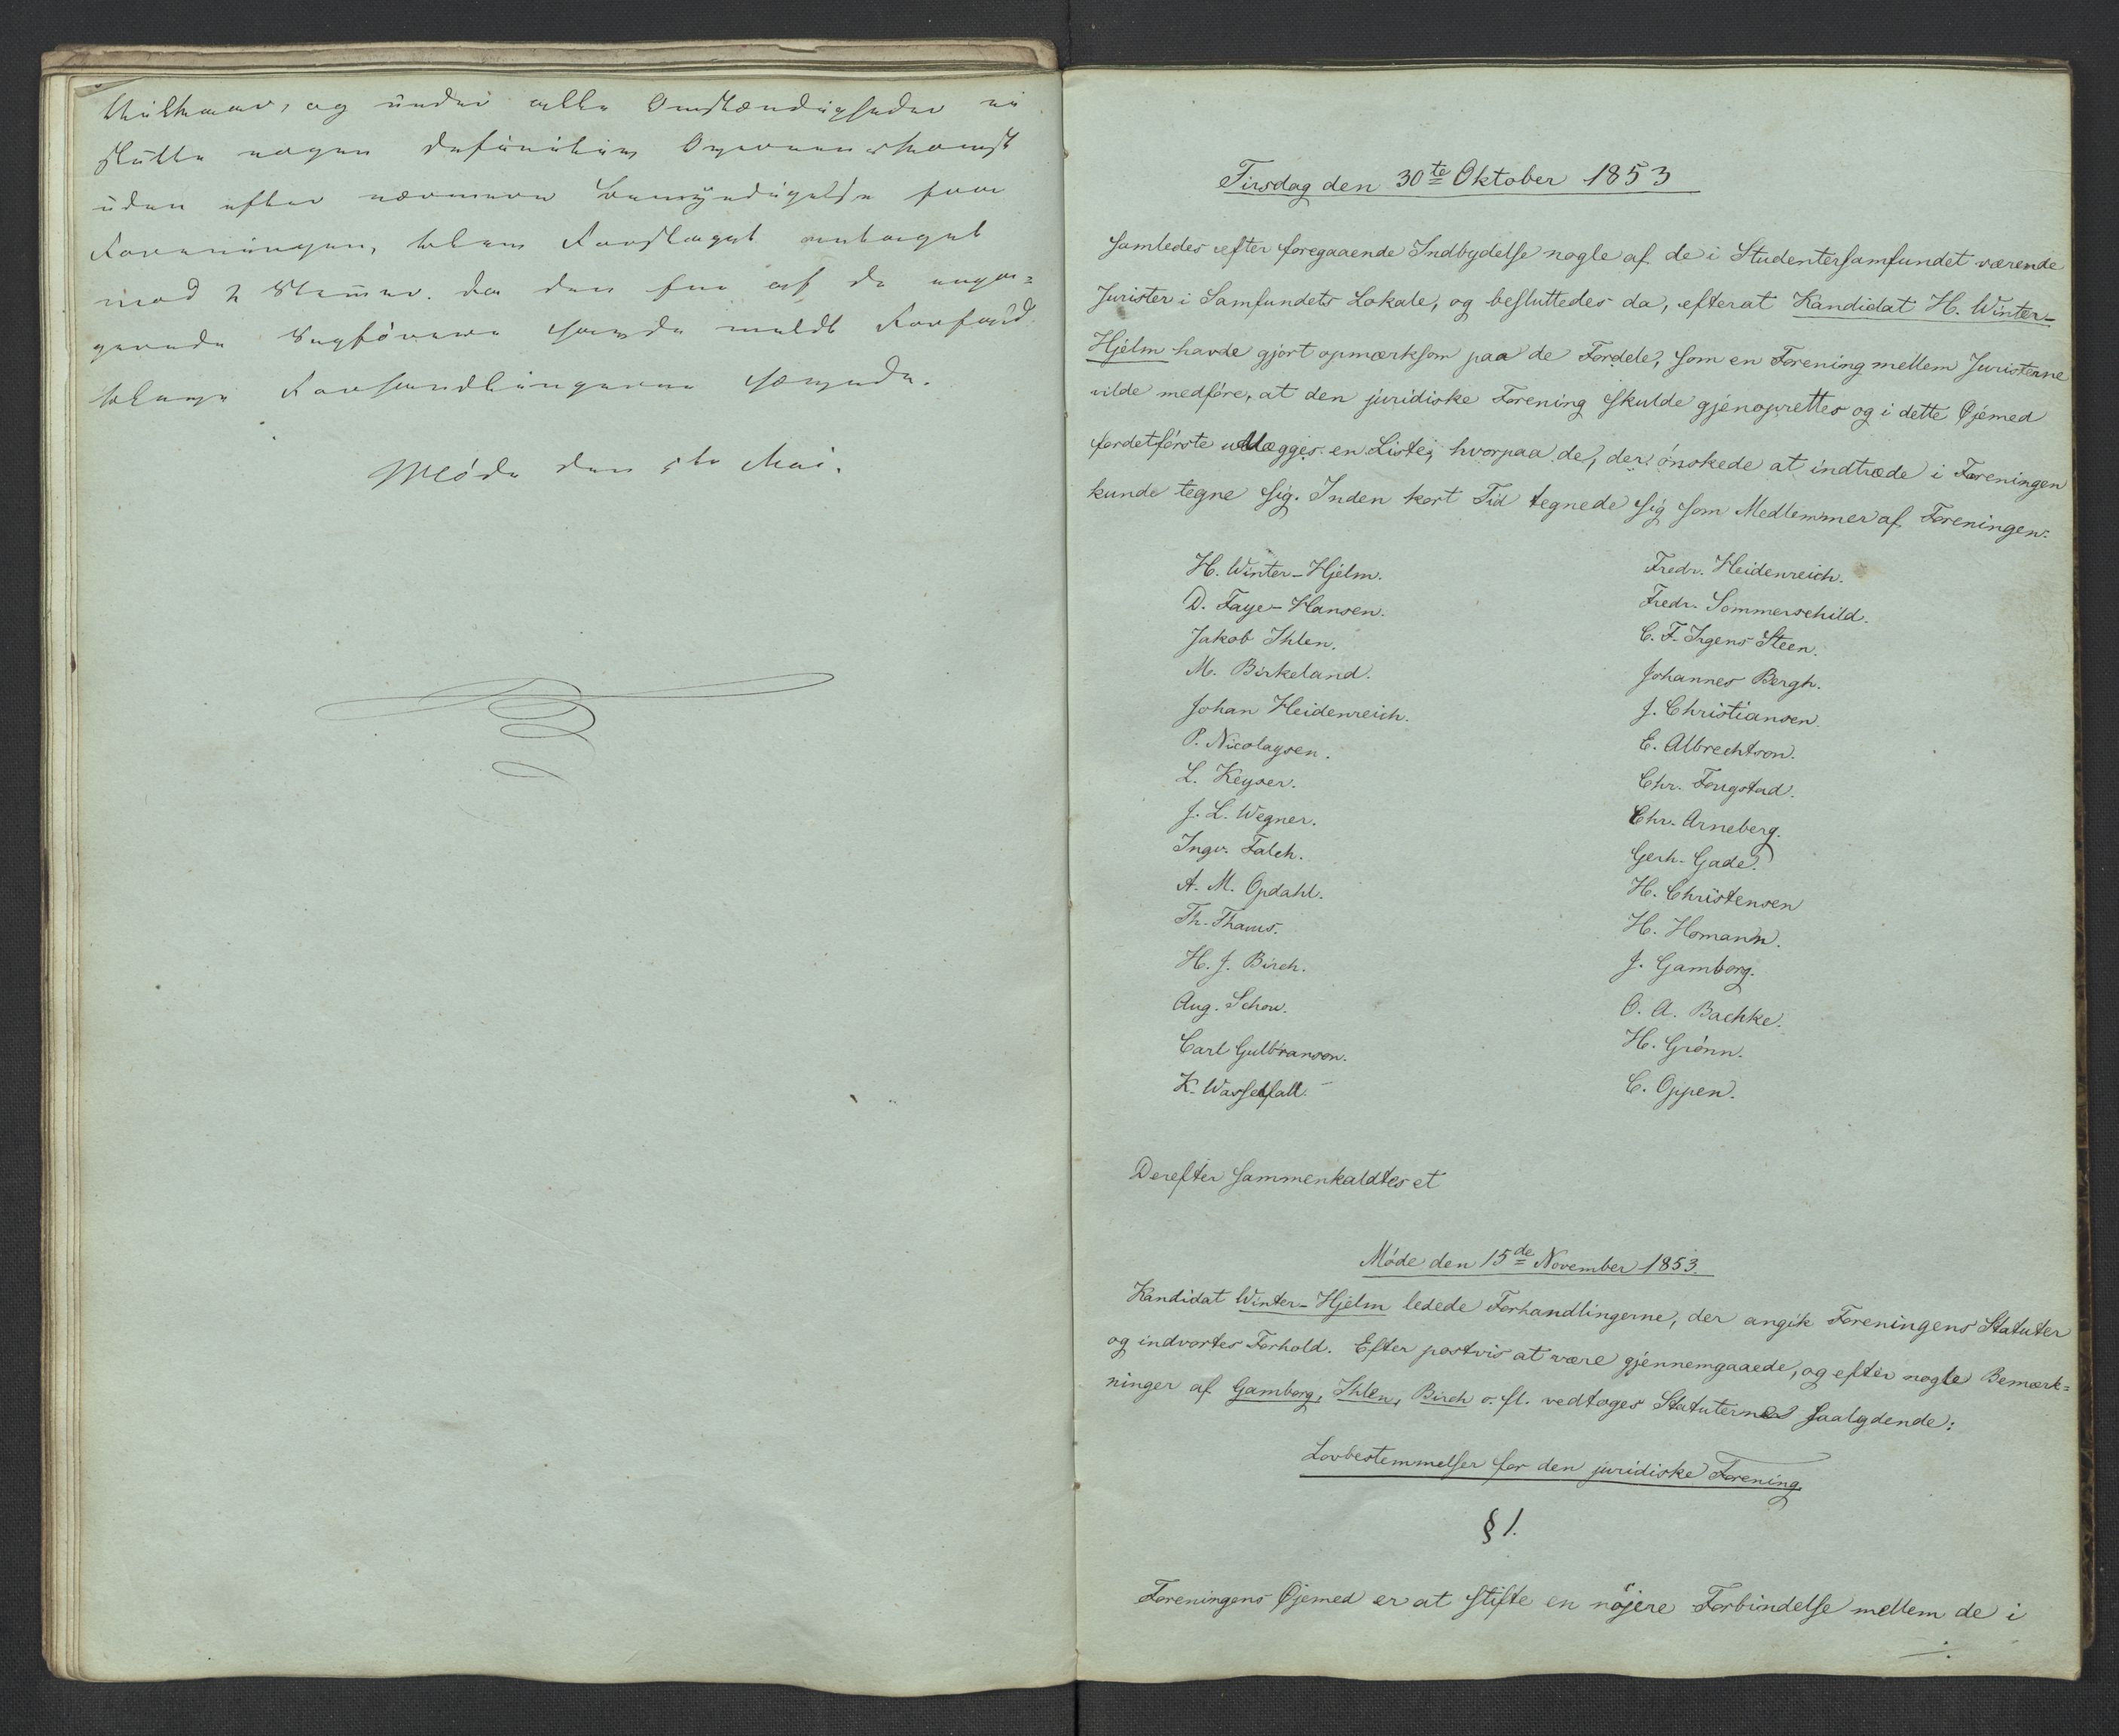 Vilkaar, og under alle Omstændigheder ei
slutte nogen definitiv Overenskomst
uden efter nærmere Bemyndigelse fra
Foreningen, blev Forslaget antaget
mod 2 Stemmer. Da den ene af de
Sagførere havde meldt Forfald
bleve Forhandlingerne hævede.
Møde den 5te Mai.
Tirsdag den 30te Oktober 1853
samledes efter foregaaende Indbydelse nogle af de i Studentersamfundet værende
Jurister i Samfundets Lokale, og besluttedes da, efterat Kandidat H. Winter-
Hjelm havde gjort opmærksom paa de Fordele, som en Forening mellem Juristerne
vilde medføre, at den juridiske Forening skulde gjenoprettes og i dette Øjemed
fordetførste udlægges en Liste, hvorpaa de, der ønskede at indtræde i Foreningen
kunde tegne sig. Inden kort Tid tegnede sig som Medlemmer af Foreningen:
H. Winter-Hjelm.
D. Faye-Hansen.
Jakob Ihlen.
M. Birkeland.
Johan Heidenreich.
P. Nicolaysen.
L. Keyser.
J. L. Wegner.
Ingv. Falch.
A. M. Opdahl.
Th. Thaus.
H. J. Birch.
Aug. Schou.
Carl Gulbranson.
K. Wasselfall.
Fredr. Heidenreich.
Fredr. Sommerschild.
C. F. Irgens Steen.
Johannes Bergh.
J. Christiansen.
E. Albrechtson.
Chr. Fougstad.
Chr. Arneberg.
Gerh. Gade.
H. Christensen
H. Homann.
J. Gamborg.
O. A. Bachke.
H. Grönn.
C. Oppen.
Derefter sammenkaldtes et
Møde den 15de November 1853.
Kandidat Winter-Hjelm ledede Forhandlingerne, der angik Foreningens Statuter
og indvortes Forhold. Efter postvis at være gjennemgaaede, og efter nogle Bemærk=
ninger af Gamborg, Ihlen, Birch o. fl. vedtoges Statuterne saalydende:
Lovbestemmelser for den juridiske Forening
§ 1.
Foreningens Øjemed er at stifte en nøjere Forbindelse mellem de i